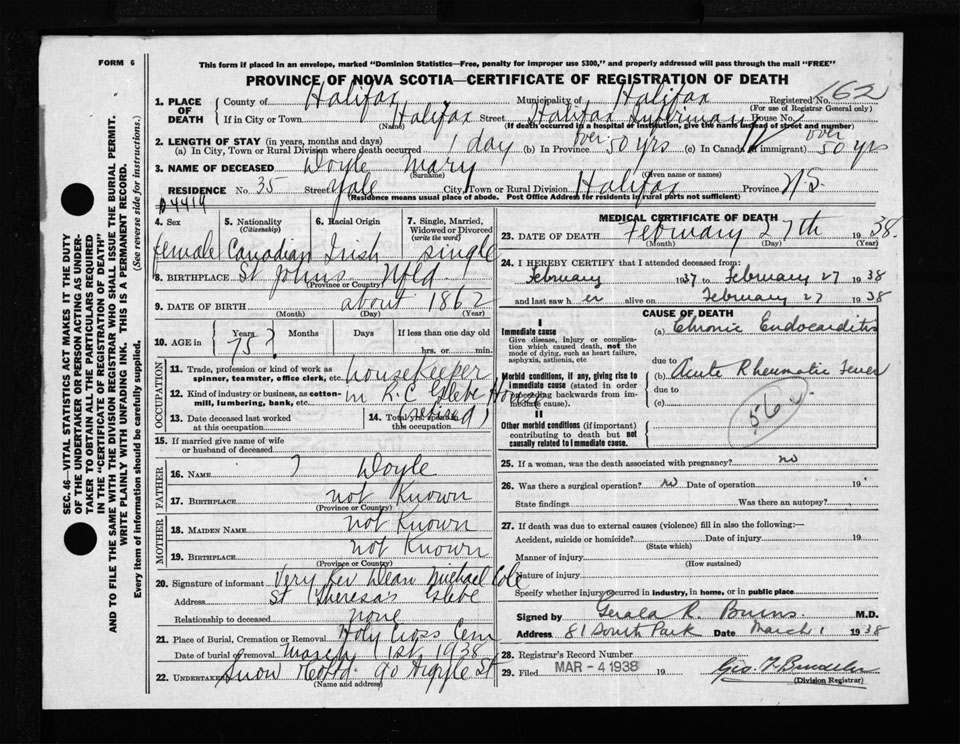 FORM 6
This form if placed in an envelope, marked "Dominion Statistics—Free, penalty for improper use $300," and properly addressed will pass through the mail "FREE"
PROVINCE OF NOVA SCOTIA—CERTIFICATE OF REGISTRATION OF DEATH
1. PLACE OF DEATH County of Halifax Municipality of Halifax Registered No. 162
(For use of Registrar General only)
If in City or Town Halifax Street Halifax Infirmary House No.
(Name) (If death occurred in a hospital or institution, give the name instead of street and number)
2. LENGTH OF STAY (in years, months and days)
(a) In City, Town or Rural Division where death occurred 1 day (b) In Province over 50 yrs (c) In Canada (if immigrant) over 50 yrs
3. NAME OF DECEASED Doyle Mary
(Surname) (Given name or names)
RESIDENCE No. 35 Street Yale City, Town or Rural Division Halifax Province N.S.
(Residence means usual place of abode. Post Office Address for residents in rural parts not sufficient)
D4419
4. Sex 5. Nationality (Citizenship) 6. Racial Origin 7. Single, Married, Widowed or Divorced (write the word)
female Canadian Irish single
8. BIRTHPLACE St Johns Nfld
(Province or Country)
9. DATE OF BIRTH about 1862
(Month) (Day) (Year)
10. AGE in Years Months Days If less than one day old
75? hrs. or min.
OCCUPATION
11. Trade, profession or kind of work as spinner, teamster, office clerk, etc. housekeeper
12. Kind of industry or business, as cotton-mill, lumbering, bank, etc. in R.C Glebe House
13. Date deceased last worked at this occupation
14. Total yrs. spent in this occupation
15. If married give name of wife or husband of deceased
FATHER
16. NAME ? Doyle
17. BIRTHPLACE not Known
(Province or Country)
MOTHER
18. MAIDEN NAME not Known
19. BIRTHPLACE not Known
(Province or Country)
20. Signature of informant Very Rev Dean Michael Cole
Address St Theresa's Glebe
Relationship to deceased none
21. Place of Burial, Cremation or Removal Holy Cross Cem
Date of burial or removal March 1st 1938
22. Undertaker Snow 90 Argyle St
(Name and address)
MEDICAL CERTIFICATE OF DEATH
23. DATE OF DEATH February 27th 1938.
(Month) (Day) (Year)
24. I HEREBY CERTIFY that I attended deceased from:
February 1937 to February 27 1938
and last saw her alive on February 27 1938
CAUSE OF DEATH
I
Immediate cause
Give disease, injury or complication which caused death, not the mode of dying, such as heart failure, asphyxia, asthenia, etc
(a) Chronic Endocarditis
due to
Morbid conditions, if any, giving rise to immediate cause (stated in order proceeding backwards from immediate cause).
(b) Acute Rheumatic Fever
due to
(c)
II
Other morbid conditions (if important) contributing to death but not causally related to immediate cause.
25. If a woman, was the death associated with pregnancy? no
26. Was there a surgical operation? no Date of operation 19
State findings Was there an autopsy?
27. If death was due to external causes (violence) fill in also the following:—
Accident, suicide or homicide? Date of injury 19
(State which)
Manner of injury
(How sustained)
Nature of injury
Specify whether injury occurred in industry, in home, or in public place
Signed by Gerald R. Burns M.D.
Address 81 South Park Date March 1 1938
28. Registrar's Record Number
29. Filed MAR - 4 1938 19
(Division Registrar)
SEC. 46—VITAL STATISTICS ACT MAKES IT THE DUTY
OF THE UNDERTAKER OR PERSON ACTING AS UNDER-
TAKER TO OBTAIN ALL THE PARTICULARS REQUIRED
IN THE "CERTIFICATE OF REGISTRATION OF DEATH"
AND TO FILE THE SAME WITH THE DIVISION REGISTRAR WHO SHALL ISSUE THE BURIAL PERMIT.
WRITE PLAINLY WITH UNFADING INK. THIS IS A PERMANENT RECORD.
Every item of information should be carefully supplied. (See reverse side for instructions.)